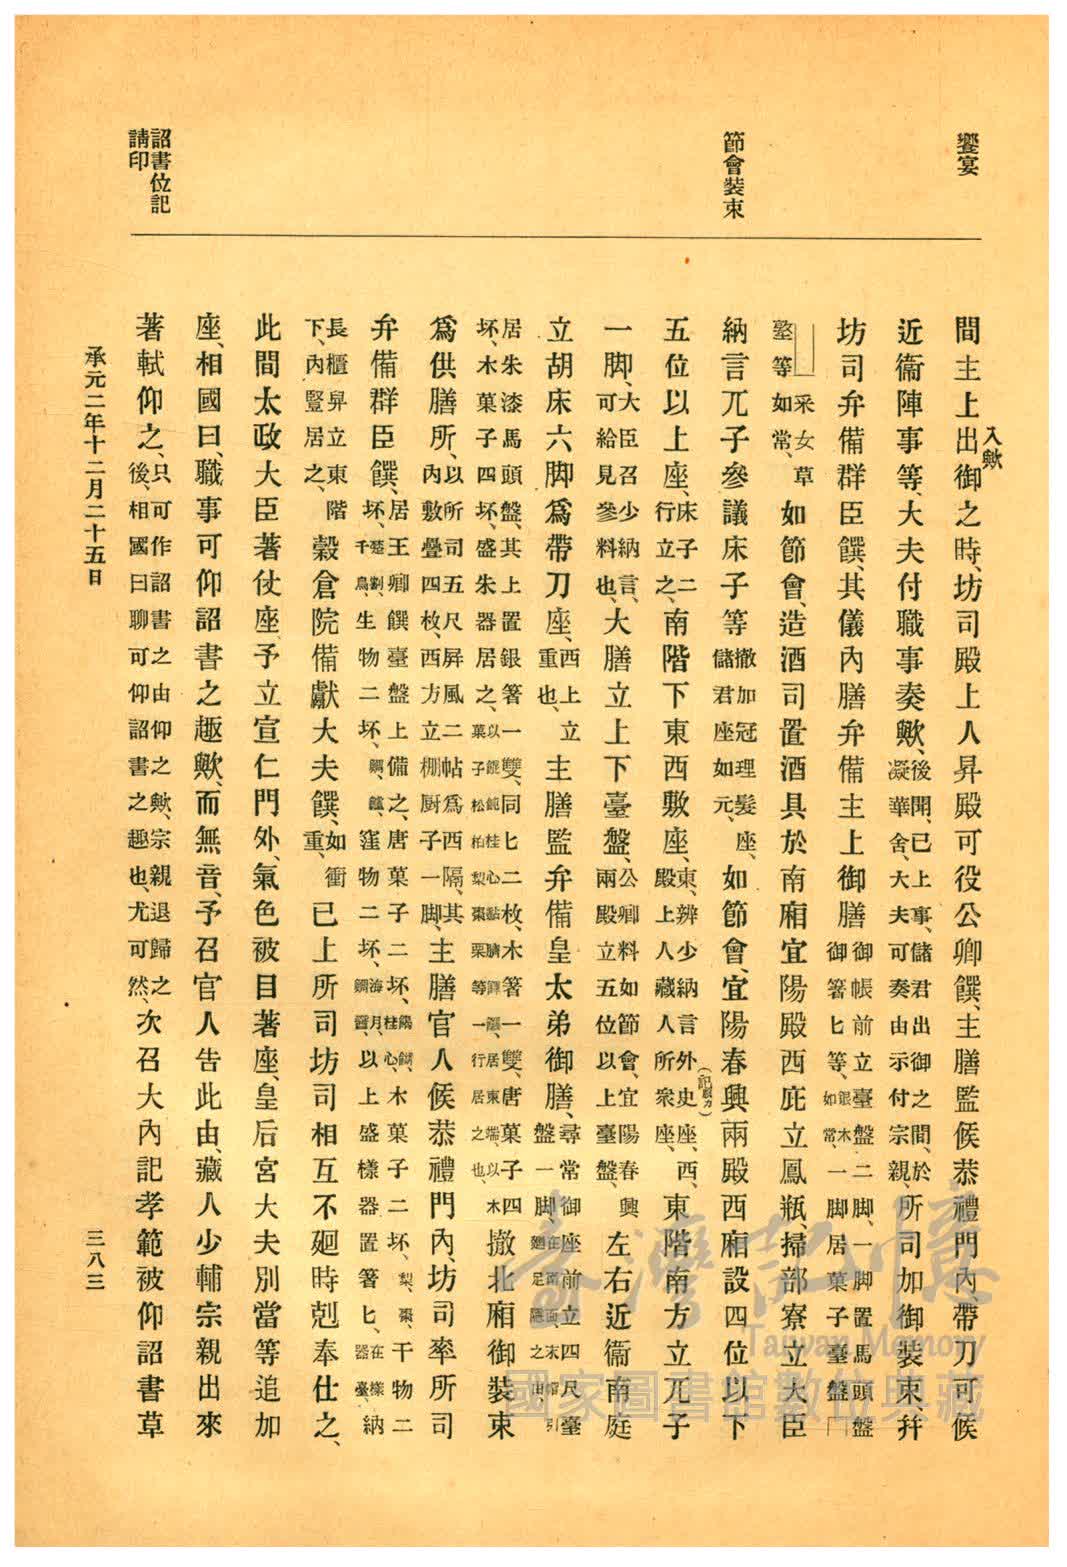 饗宴
節會裝束
詔書位記
請印
入歟
間主上出御之時、坊司殿上人昇殿可役公卿饌、主膳監候恭禮門內、帶刀可候
近衞陣事等、大夫付職事奏歟、後聞、已上事、儲君出御之間、於
凝華舍、大夫可奏由示付宗親、所司加御裝束、幷
坊司弁備群臣饌、其儀內膳弁備主上御膳御帳前立臺盤二脚、一脚置馬頭盤
御箸匕等、銀木如常、一脚居菓子臺盤
采女草
墪等如常、如節會、造酒司置酒具於南廂宜陽殿西庇立鳳瓶、掃部寮立大臣
納言兀子參議床子等撤加冠理髮座、
儲君座如元、如節會、宜陽春興兩殿西廂設四位以下
五位以上座、床子二
行立之、南階下東西敷座、東、辨少納言外史座、西、
殿上人藏人所衆座、東階南方立兀子
一脚、大臣召少納言、
可給見參料也、大膳立上下臺盤、公卿料如節會、宜陽春興
兩殿立五位以上臺盤、左右近衞南庭
立胡床六脚爲帶刀座、西上立
重也、主膳監弁備皇太弟御膳、尋常御座前立四尺臺
盤一脚
居朱漆馬頭盤、其上置銀箸一雙、同匕二枚、木箸一雙、唐菓子四
坏、木菓子四坏、盛朱器居之、撤北廂御裝束
爲供膳所、以所司五尺屏風二帖爲西隔、其
內敷疊四枚、西方立棚厨子一脚、主膳官人候恭禮門內、坊司率所司
弁備群臣饌、居王卿饌臺盤上備之、唐菓子二坏、木菓子二坏、梨、棗、干物二
坏、千鳥、生物二坏、窪物二坏、以上盛樣器置箸匕、在樣器臺、納
長櫃舁立東階
下、內豎居之、穀倉院備獻大夫饌、如衝
重、已上所司坊司相互不廻時剋奉仕之、
此間太政大臣著仗座、予立宣仁門外、氣色被目著座、皇后宮大夫別當等追加
座、相國曰、職事可仰詔書之趣歟、而無音、予召官人告此由、藏人少輔宗親出來
著軾仰之、只可作詔書之由仰之歟、宗親退歸之
後、相國曰聊可仰詔書之趣也、尤可然、次召大內記孝範被仰詔書草
承元二年十二月二十五日
三八三
臺灣記憶
Taiwan Memory
國家圖書館數位典藏